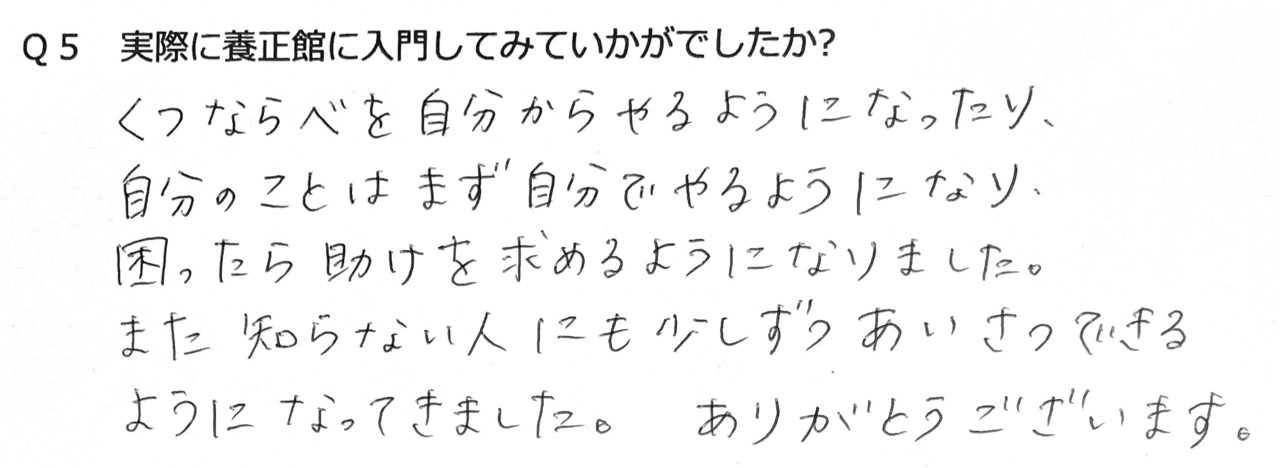 Q5 実際に養正館に入門してみていかがでしたか?
くつならべを自分からやるようになったり、
自分のことはまず自分でやるようになり、
困ったら助けを求めるようになりました。
また知らない人にも少しずつあいさつできる
ようになってきました。 ありがとうございます。